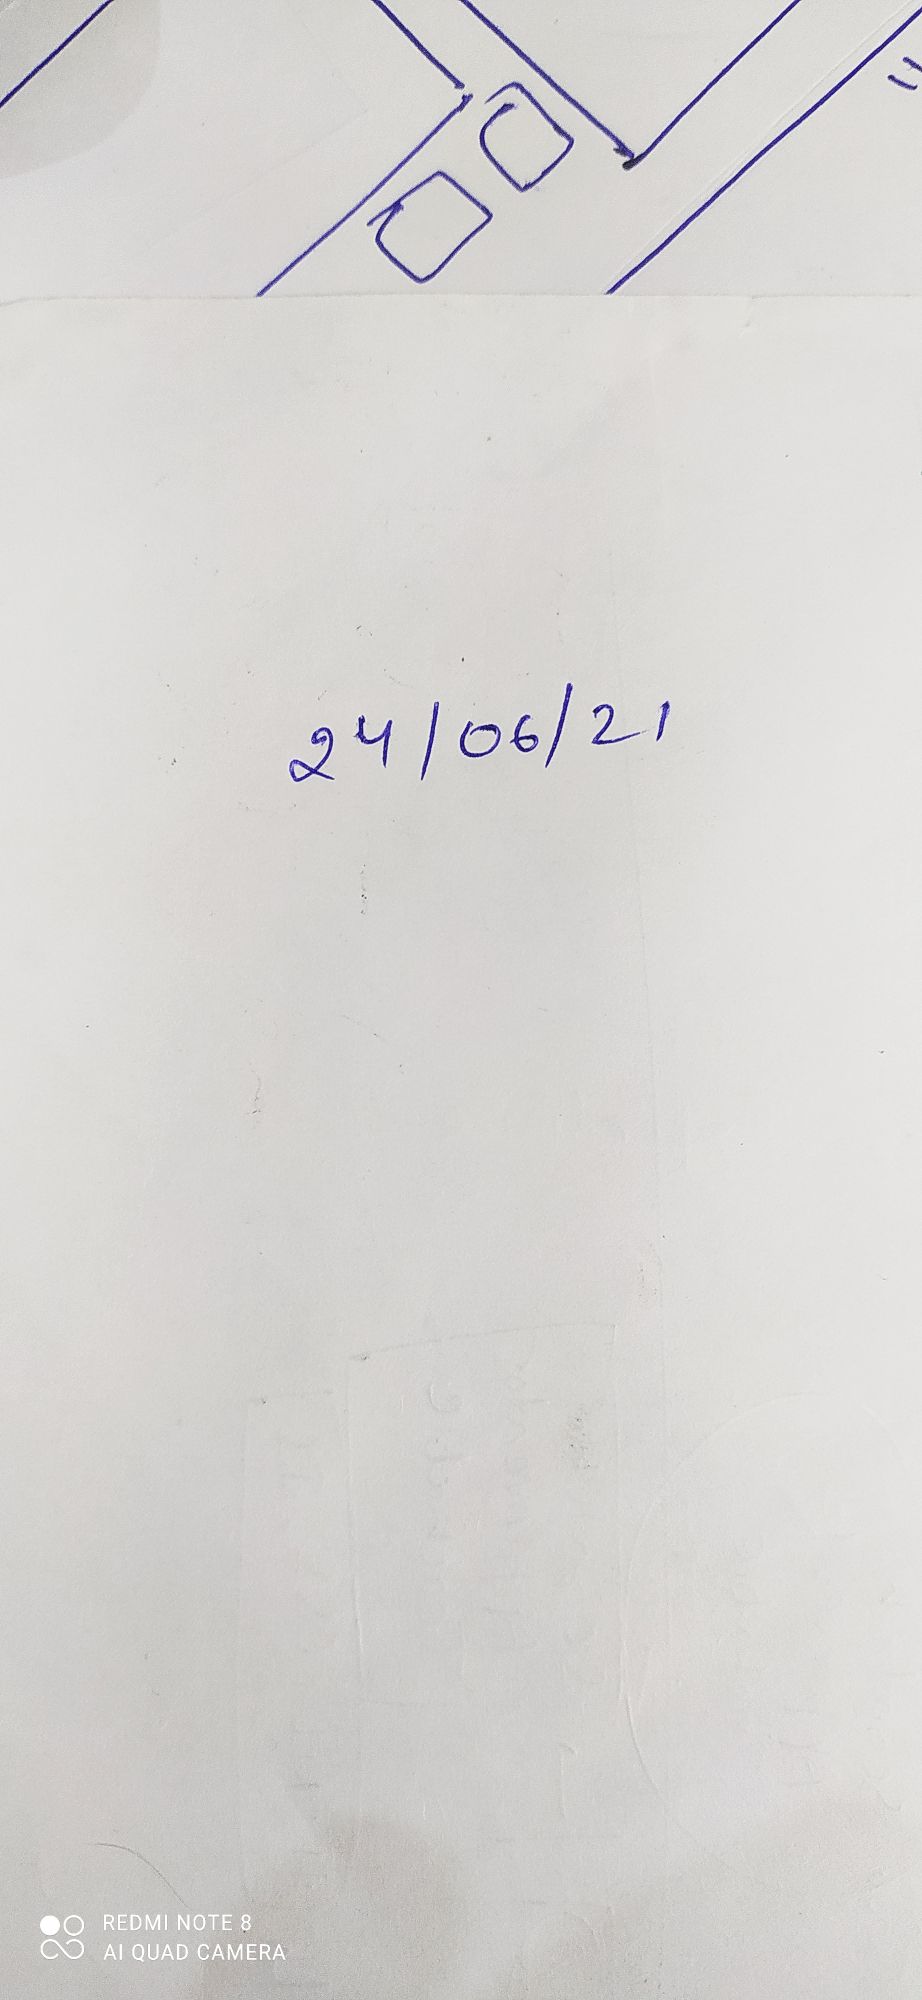 24/06/21
REDMI NOTE 8
AI QUAD CAMERA